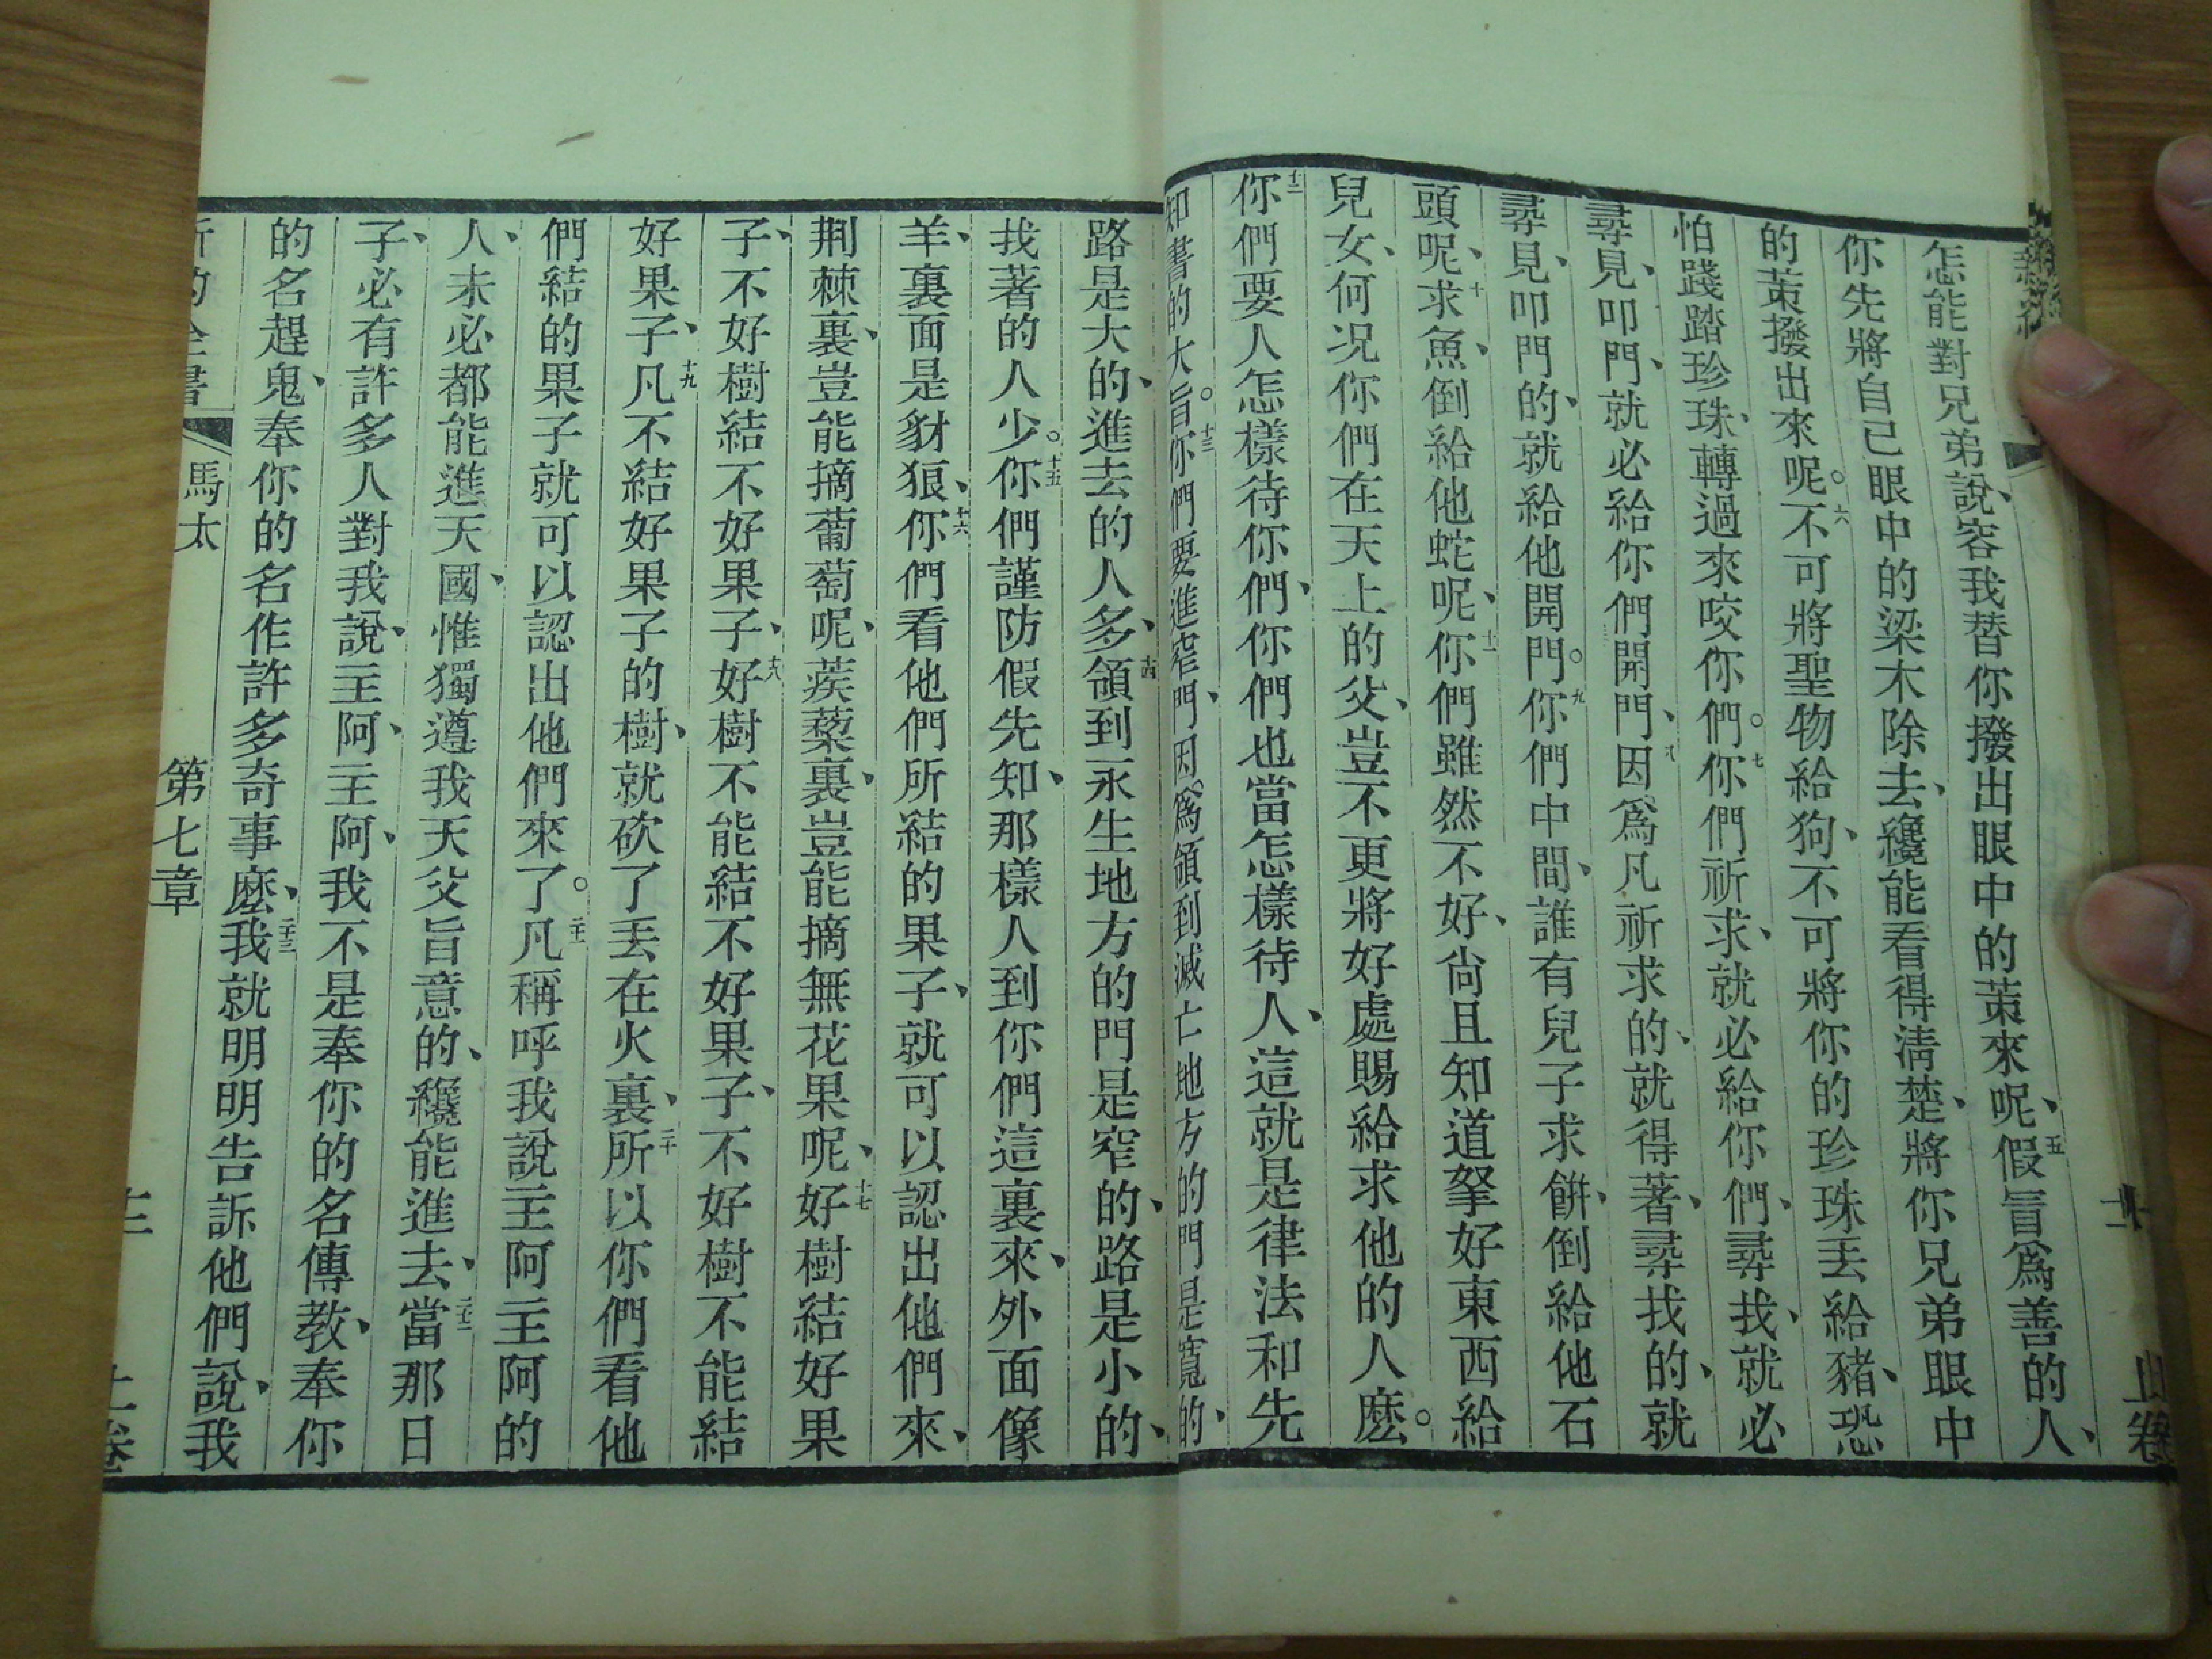 怎能對兄弟說、容我替你撥出眼中的䇲來呢、五假冒爲善的人、
你先將自己眼中的梁木除去、纔能看得淸楚、將你兄弟眼中
的䇲撥出來呢。六不可將聖物給狗、不可將你的珍珠丟給豬、恐
怕踐踏珍珠、轉過來咬你們。七你們祈求、就必給你們、尋找、就必
尋見、叩門、就必給你們開門、八因爲凡祈求的、就得著、尋找的、就
尋見、叩門的、就給他開門。九你們中間、誰有兒子求餅、倒給他石
頭呢、十求魚、倒給他蛇呢、十一你們雖然不好、尙且知道拏好東西給
兒女、何況你們在天上的父、豈不更將好處賜給求他的人麽。
十二你們要人怎樣待你們、你們也當怎樣待人、這就是律法和先
知書的大旨。十三你們要進窄門、因爲領到滅亡地方的門是寬的、
路是大的、進去的人多、十四領到永生地方的門是窄的、路是小的、
找著的人少。十五你們謹防假先知、那樣人到你們這裏來、外面像
羊、裏面是豺狼、十六你們看他們所結的果子、就可以認出他們來、
荆棘裏、豈能摘葡萄呢、蒺藜裏、豈能摘無花果呢、十七好樹結好果
子、不好樹結不好果子、十八好樹不能結不好果子、不好樹不能結
好果子、十九凡不結好果子的樹、就砍了丟在火裏、二十所以你們看他
們結的果子就可以認出他們來了。二十一凡稱呼我說主阿主阿的
人、未必都能進天國、惟獨遵我天父旨意的、纔能進去、二十二當那日
子、必有許多人對我說、主阿、主阿、我不是奉你的名傳敎、奉你
的名趕鬼、奉你的名作許多奇事麽、二十三我就明明告訴他們說、我
新約全書 馬太 第七章 十二 上卷